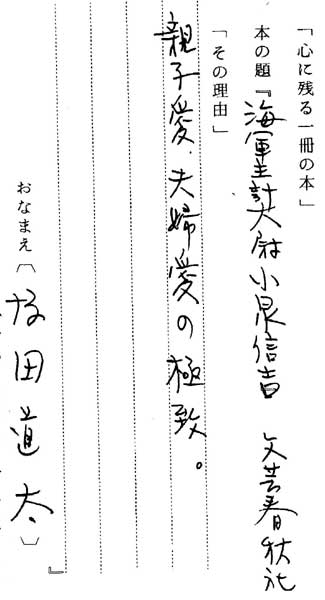 「心に残る一冊の本」
本の題『海軍主計大尉小泉信吉 文芸春秋社
「その理由」
親子愛、夫婦愛の極致。
おなまえ〔坂田道太〕
』